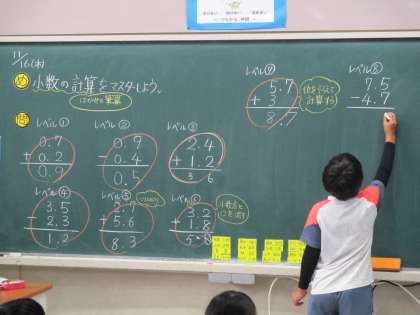 11/16(木)
め 小数の計算をマスターしよう。
はかせの筆算
問
レベル①
0.7
+0.2
0.9
レベル②
0.9
-0.4
0.5
レベル③
2.4
+1.2
3.6
レベル④
3.5
-2.3
1.2
レベル⑤
2.7
5.6
8.3
レベル⑥
3.2
+1.8
小数点と
0を消す
レベル⑦
5.7
+3
8.7
位をそろえて
計算する
レベル⑧
7.5
-4.7